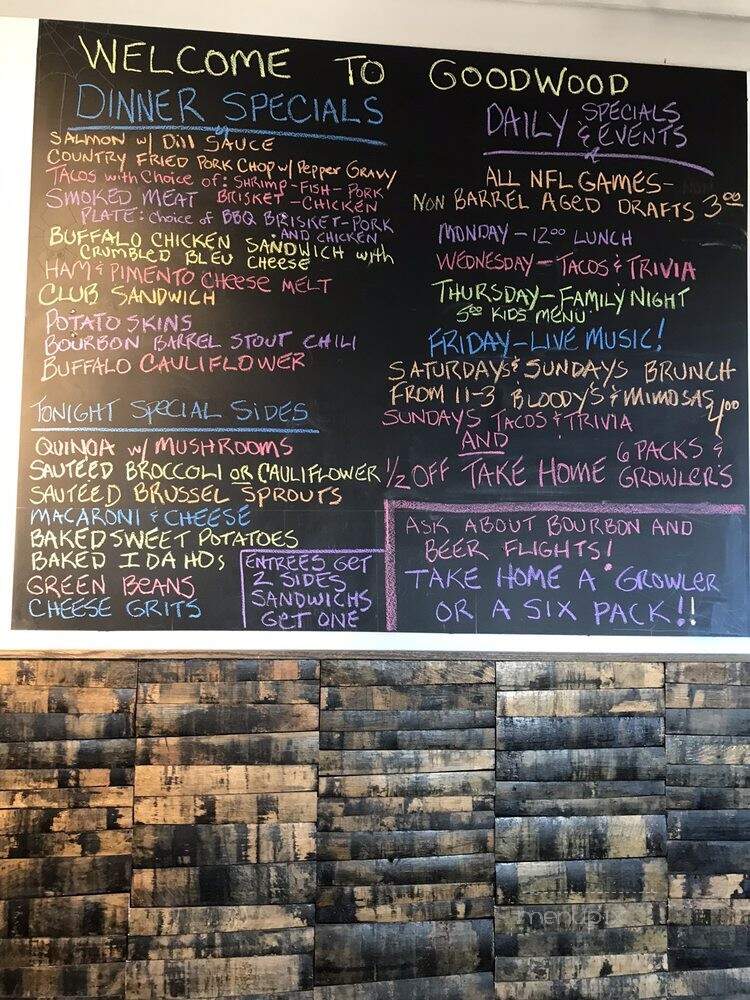 WELCOME TO GOODWOOD
DINNER SPECIALS
SALMON w/ Dill SAUCE
COUNTRY FRIED PORK CHOP w/ Pepper GRAVY
TACOS with Choice of: SHRIMP-FISH-PORK
BRISKET-CHICKEN
SMOKED MEAT
PLATE: choice of BBQ BRISKET-PORK
AND CHICKEN
BUFFALO CHICKEN SANDWICH with
CRUMBLED BLEU CHEESE
HAM & PIMENTO CHEESE MELT
CLUB SANDWICH
POTATO SKINS
BOURBON BARREL STOUT CHILI
BUFFALO CAULIFLOWER
TONIGHT SPECIAL SIDES
QUINOA w/ MUSHROOMS
SAUTÉED BROCCOLI OR CAULIFLOWER
SAUTÉED BRUSSEL SPROUTS
MACARONI & CHEESE
BAKED SWEET POTATOES
BAKED IDAHOs
GREEN BEANS
CHEESE GRITS
ENTREES GET
2 SIDES
SANDWICHS
GET ONE
DAILY SPECIALS
& EVENTS
ALL NFL GAMES-
NON BARREL AGED DRAFTS 3.00
MONDAY-12.00 LUNCH
WEDNESDAY-TACOS & TRIVIA
THURSDAY-FAMILY NIGHT
5.00 KIDS MENU
FRIDAY-LIVE MUSIC!
SATURDAYS & SUNDAYS BRUNCH
FROM 11-3 BLOODY'S & MIMOSAS 4.00
SUNDAYS TACOS & TRIVIA
AND
1/2 OFF TAKE HOME 6 PACKS &
GROWLER'S
ASK ABOUT BOURBON AND
BEER FLIGHTS!
TAKE HOME A GROWLER
OR A SIX PACK!!